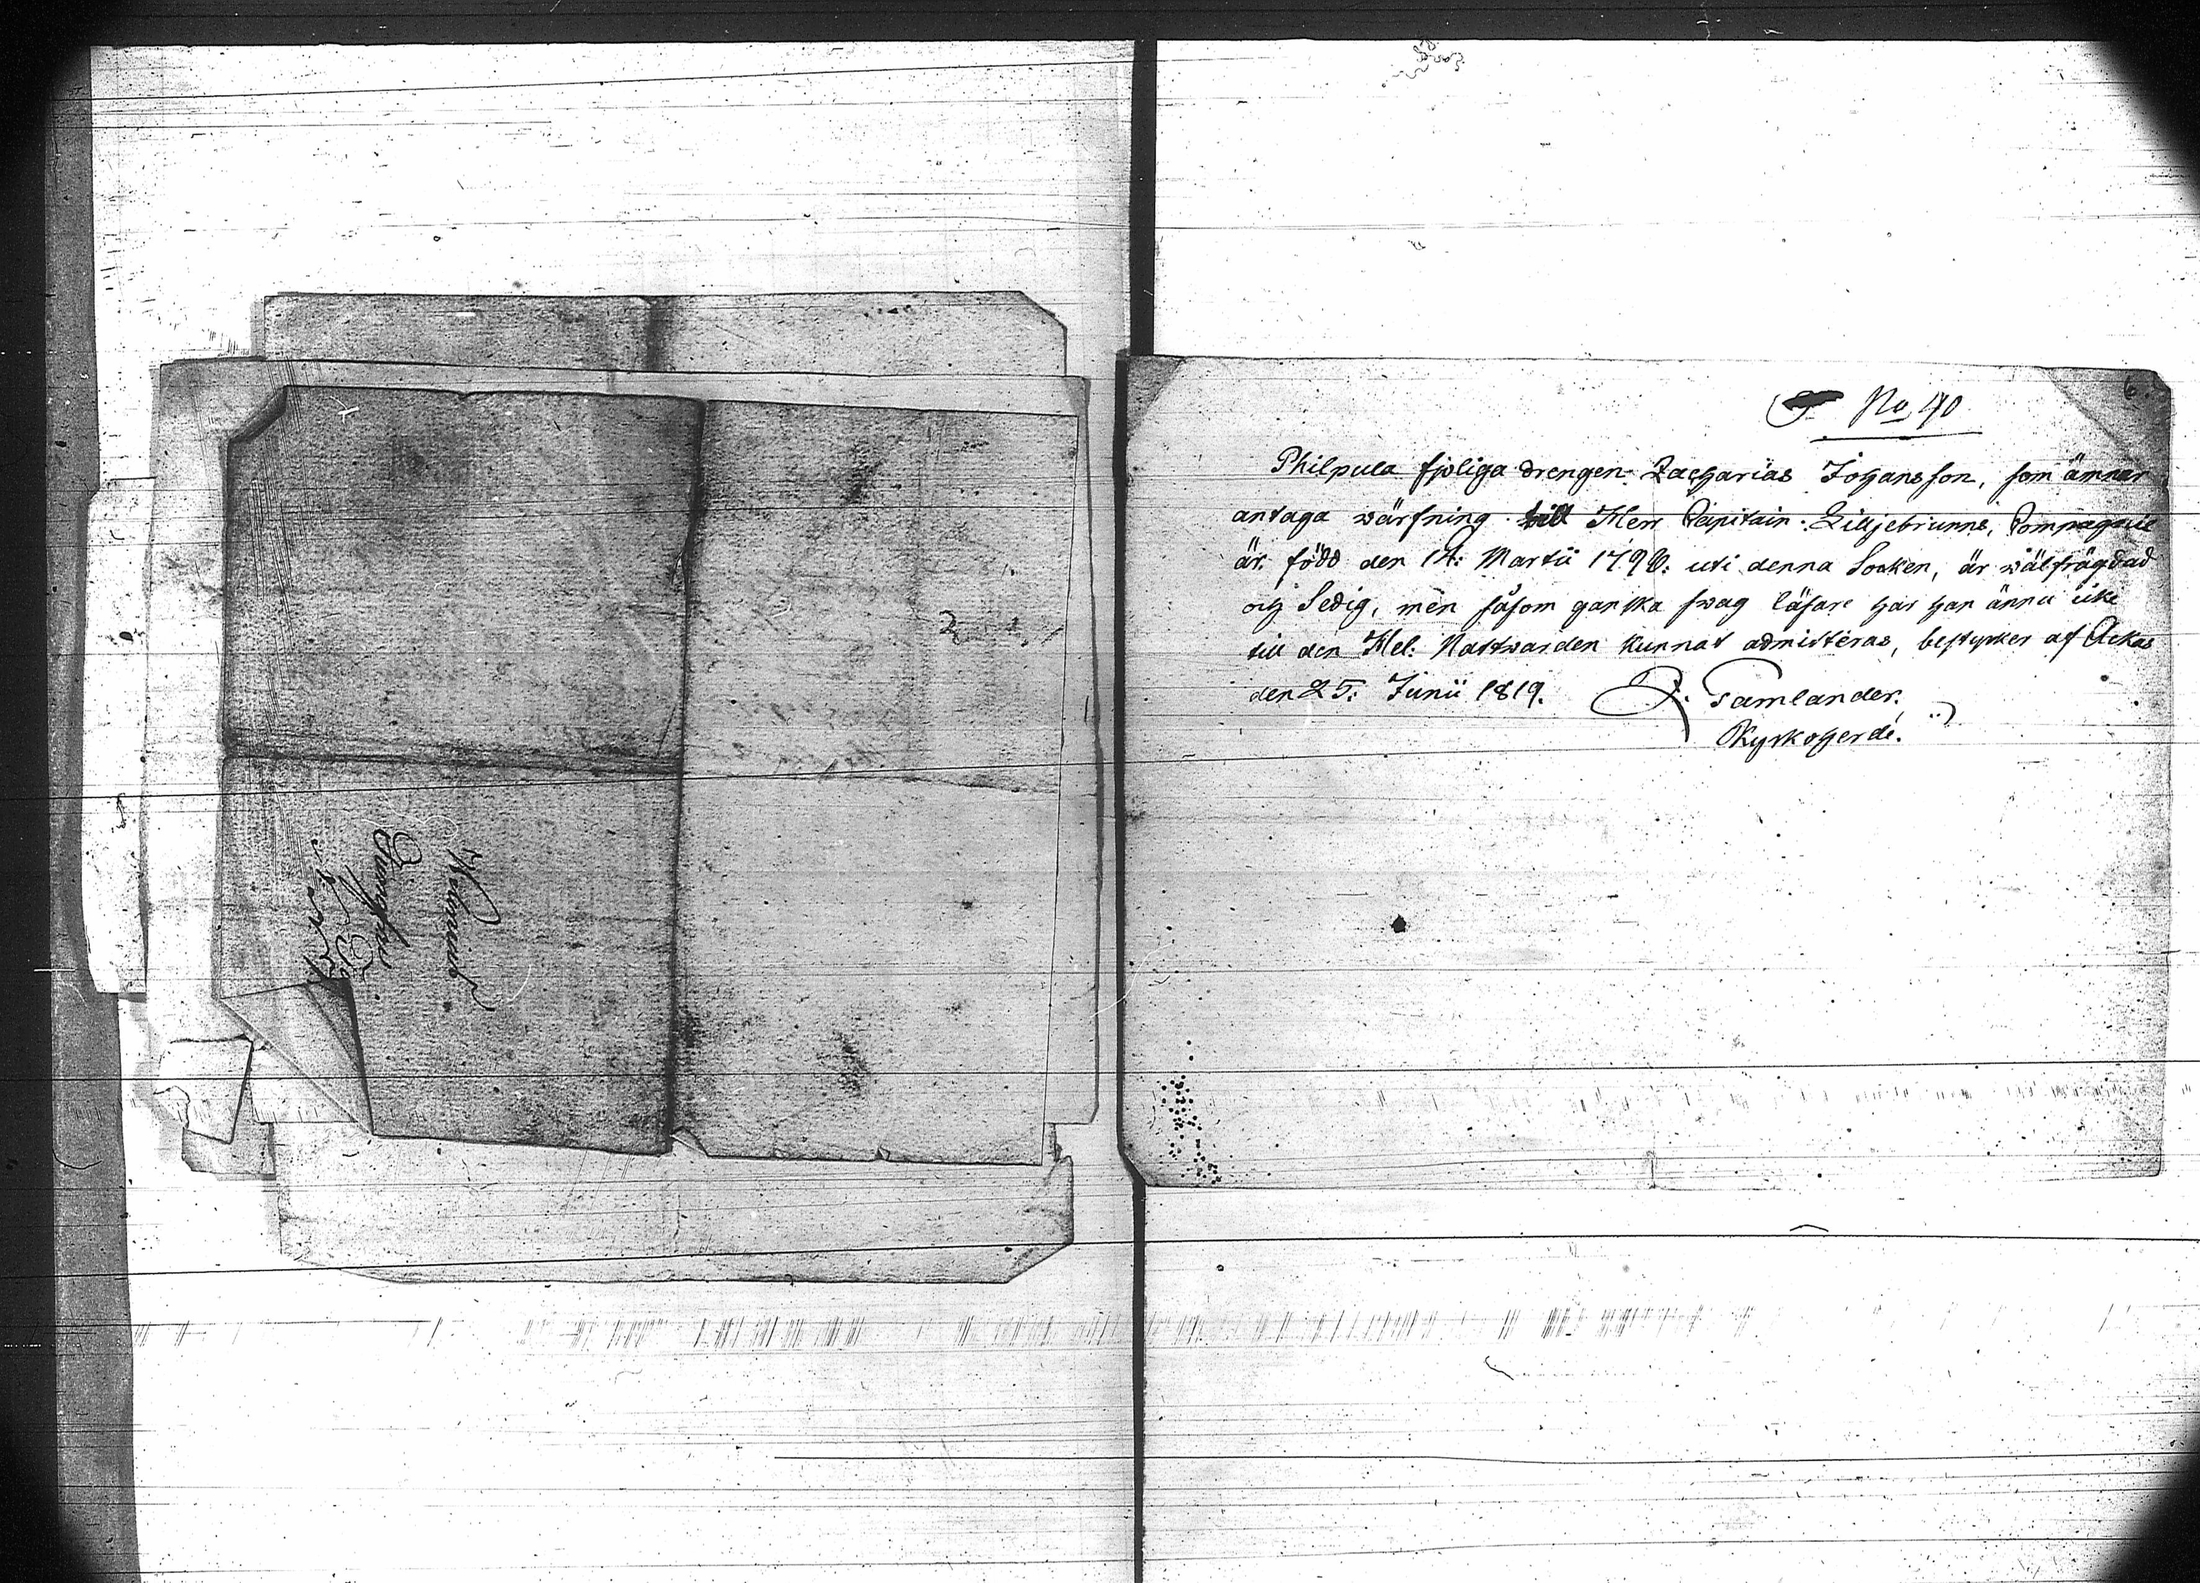 6.
No 40
Philpula fjoliga drengen Zacharias Johansson, som ämnar
antaga wärfning till Herr Capitain Liljebrunns, Compagnie
är född den 14: Martii 1798: uti denna Socken, är wälfrägdad
och Ledig, men såsom ganska swag läsare har han ännu icke
till den Hel: Nattwarden kunnat admitteras, bestyrker af Ackas
den 25: Junii 1819.
Tamlander.
Kyrkoherde.
Jungfru
2